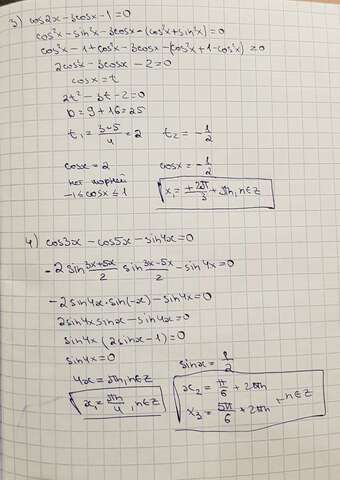 3) cos2x - 3cosx - 1 = 0
cos²x - sin²x - 3cosx - (cos²x + sin²x) = 0
cos²x - 1 + cos²x - 3cosx - (cos²x + 1 - cos²x) = 0
2cos²x - 3cosx - 2 = 0
cosx = t
2t² - 3t - 2 = 0
D = 9 + 16 = 25
t₁ = (3-5)/4 = 2 t₂ = -1/2
cosx = 2 cosx = -1/2
нет корней
-1 ≤ cosx ≤ 1 x₁ = ±2π/3 + πn, n∈Z
4) cos3x - cos5x - sin4x = 0
-2 sin (3x+5x)/2 sin (3x-5x)/2 - sin4x = 0
-2sin4x·sin(-x) - sin4x = 0
2sin4x sinx - sin4x = 0
sin4x (2sinx - 1) = 0
sin4x = 0 sinx = 1/2
4x = πn, n∈Z x₂ = π/6 + 2πn
x₁ = πn/4, n∈Z x₃ = 5π/6 + 2πn , n∈Z